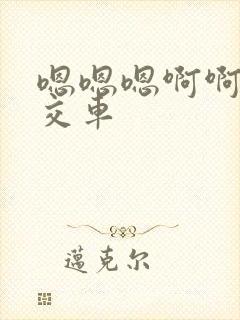 嗯嗯嗯啊啊
交车
邁克尔